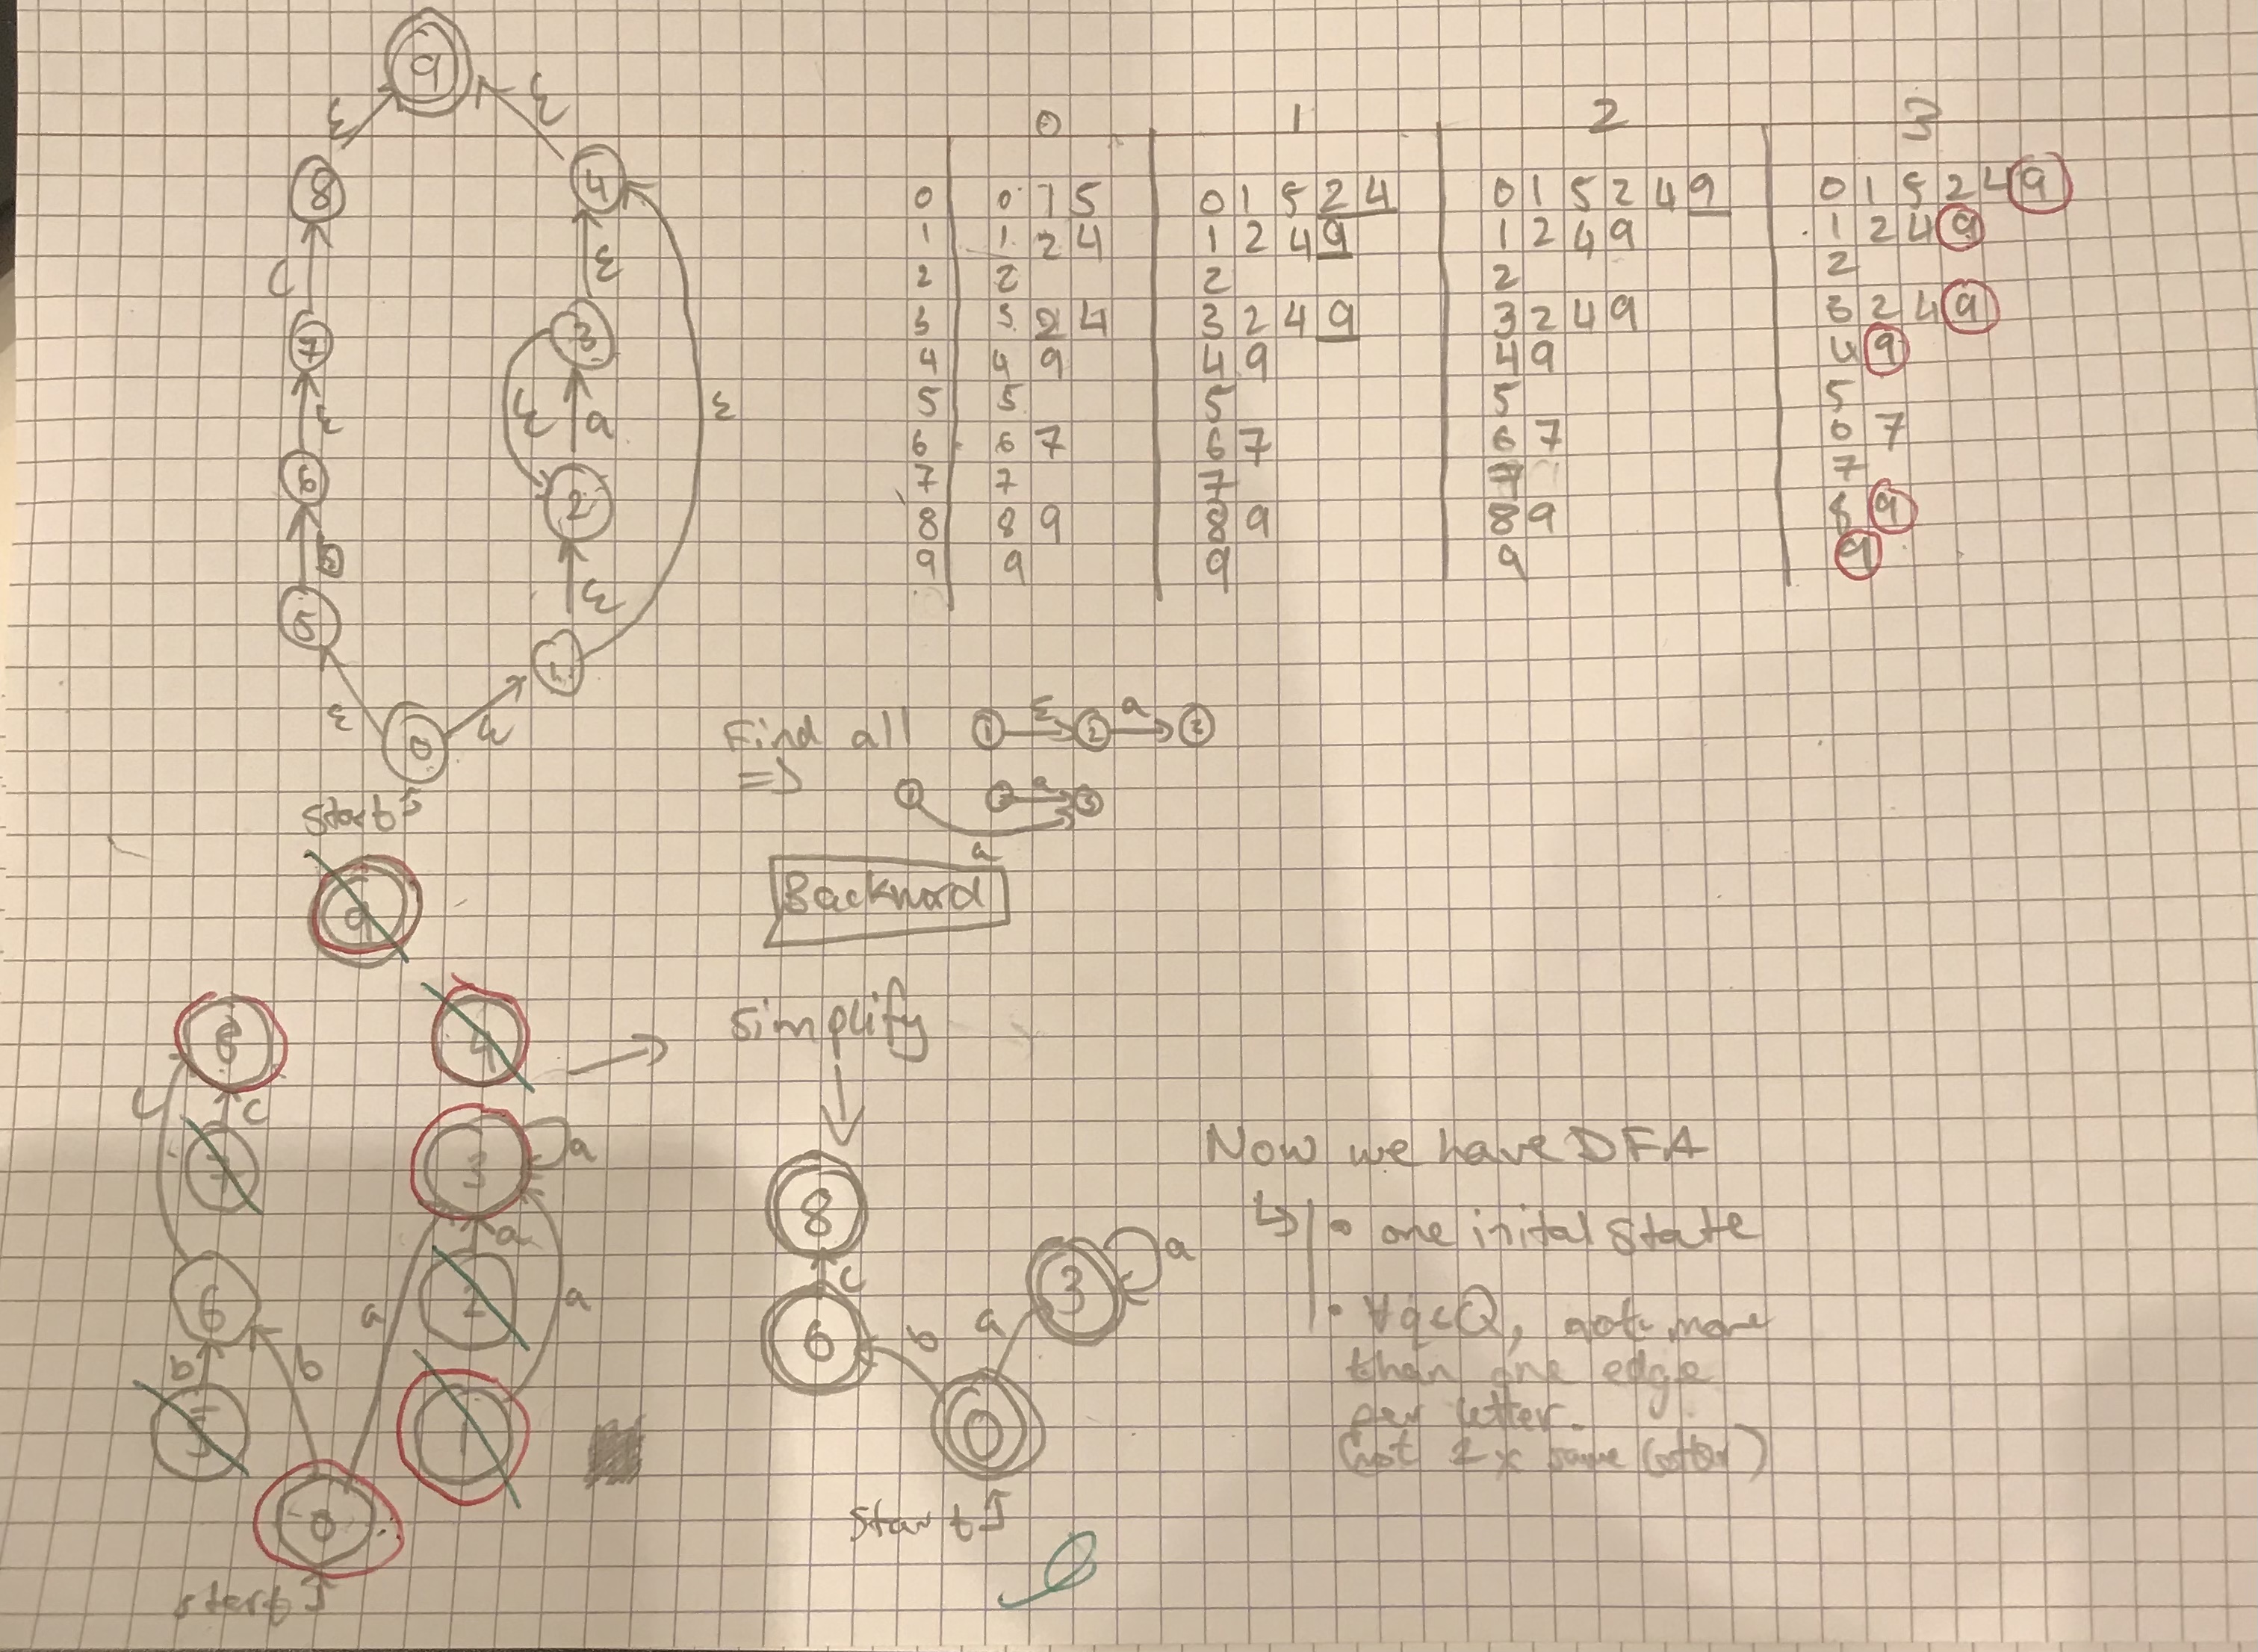 9
ε ε
8 4
C ε
7 3
ε ε a ε
6 2
b ε
5 1
ε 0 ε
start
0 1 2 3
0 0 1 5 0 1 5 2 4 0 1 5 2 4 9 0 1 5 2 4 9
1 1 2 4 1 2 4 9 1 2 4 9 1 2 4 9
2 2 2 2 2
3 3 2 4 3 2 4 9 3 2 4 9 3 2 4 9
4 4 9 4 9 4 9 4 9
5 5 5 5 5
6 6 7 6 7 6 7 6 7
7 7 7 7 7
8 8 9 8 9 8 9 8 9
9 9 9 9 9
Find all 1 ε 2 a
=> a
a
Backward
9
8 4
c c
7 3 a
a
6 2
b b a a
5 1
0
start
simplify
8
c
6 b a 3 a
0
start
Now we have DFA
• one inital state
• ∀q∈Q, not more
than one edge
per letter.
(not 2x same letter)